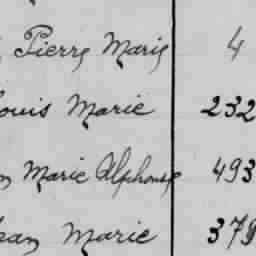 Pierre Marie 4
Louis Marie 232
Marie Alphonse 493
Jean Marie 379